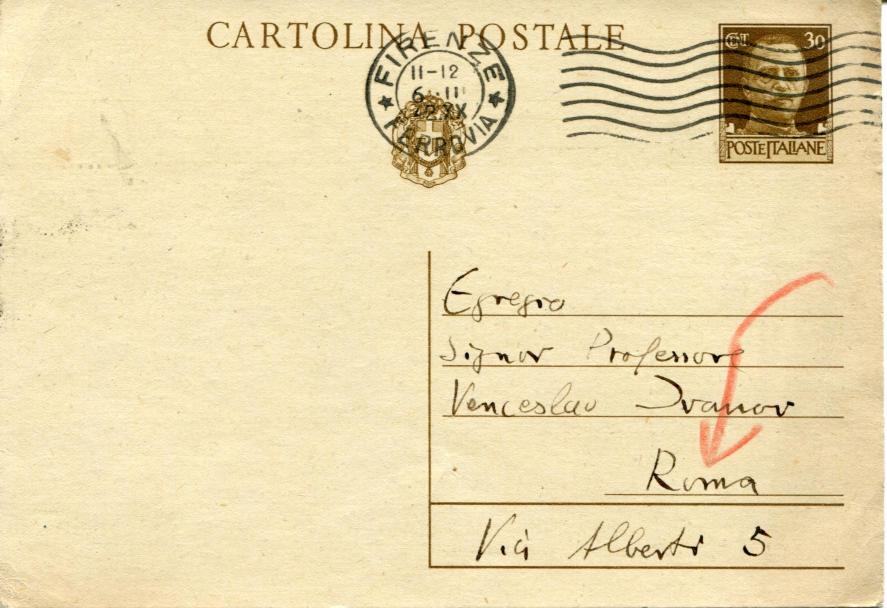 CARTOLINA POSTALE
FIRENZE
11-12
6 III
42 XX
FERROVIA
CENT 30
POSTE ITALIANE
Egregio
Signor Professore
Venceslao Ivanov
Roma
Via Alberti 5